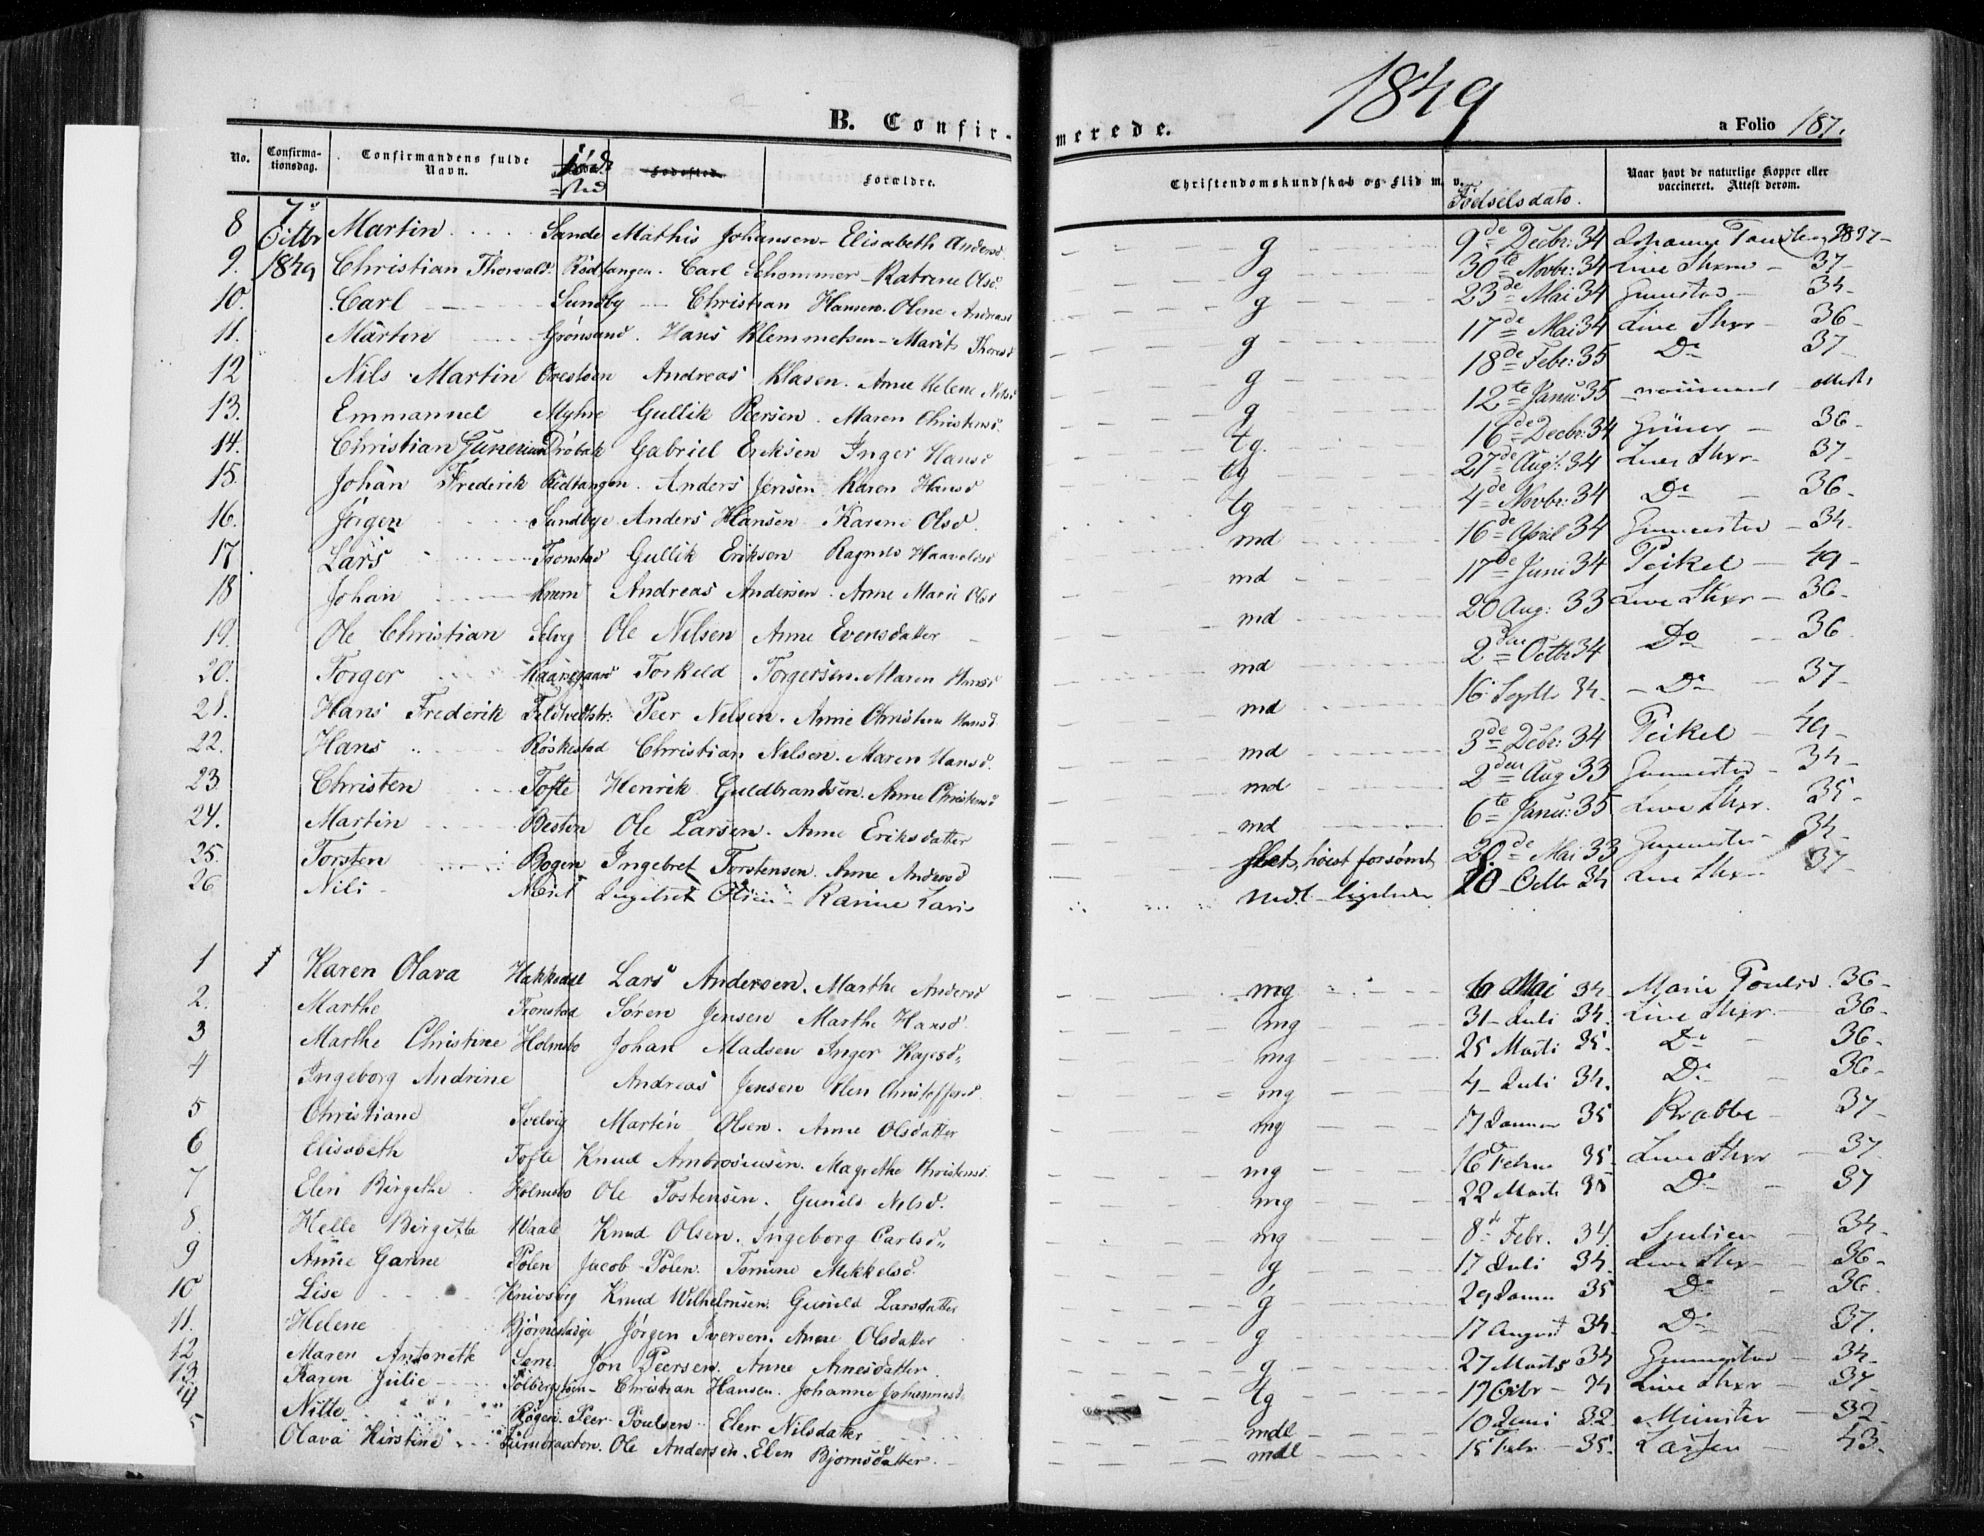 1849
B. Confirmerede.
a Folio 187.
No. Confirmationsdag. Confirmandens fulde Navn. Fødested. Forældre. Christendomskundskab og Flid m. v. Fødselsdato. Naar havt de naturlige Kopper eller vaccineret. Attest derom.
8 7de Octbr Martin Sande Mathis Johansen - Elisabeth Andersd. g 9de Decbr: 34 1837
9. 1849 Christian Thorvald Rødtangen. Carl Schommer - Katrine Olsd g 30te Novbr: 34 Live Sthxr - 37
10. Carl Sundby Christian Hansen. Olene Andreasd g 23de Mai 34 34
11. Marten Grønsand. Hans Klemmetsen - Marit Thoresd g 17de Mai 34 Live Sthxr - 36
12 Nils Martin Andreas Klasen. Anne Helene Nilsd g 18de Febr: 35 Do 37
13. Emmanuel Myhre Gullik Peersen. Maren Christensd. g 12te Janu: 35
14. Christian Gunerius Drøbak Gabriel Eriksen Inger Hansd tg. 16de Decbr: 34 36
15. Johan Frederik Rødtangen. Anders Jensen Karen Hansd tg 27de Augt: 34 Live Sthxr - 37
16. Jørgen Sundbye Anders Hansen Karine Olsd. tg 4de Novbr: 34 Do - 36
17 Lars Tronstad Gullik Eriksen Ragnild Haavelsd md 16de April 34 34
18 Johan Andreas Andersen. Anne Marie Olsd md 17de Juni 34 Peikel - 49
19. Ole Christian Selvig Ole Nilsen Anne Evensdatter md 20 Aug: 33 Live Sthxr - 36
20. Torger Torkeld Torgersen. Maren Hansd md 2den Octbr 34 Do - 36
21. Hans Frederik Peer Nilsen. Anne Christine Hansd md 16 Septbr 34. Do 37
22. Hans Røskestad Christian Nilsen. Maren Hansd. md 3de Decbr: 34 Peikel - 49
23 Christen Tofte Henrik Guldbrandsen. Anne Christensd md 2den Aug 33 34
24. Martin Besten Ole Larsen. Anne Eriksdatter md 6te Janu: 35 Live Sthxr. 35
25. Torsten Bogen Ingebret Torstensen. Anne Andersd slet, høist forsømt 20de Mai 33 34
26 Nils Næret Ingebret Olsen - Karine Larsd mdl - ligeledes 20 - Octbr 34 Live Sthxr 37
1 Karen Olava Hakkedal Lars Andersen. Marthe Andersd mg 6 Mai 34. Marie Poulsd. 36
2. Marthe Tronstad Søren Jensen Marthe Hansd. mg 31 - Juli 34. Live Sthxr. 36
3 Marthe Christine Holmsbo Johan Madsen Inger mg 25 Marts 35. Do 36
4 Ingeborg Andrine Andreas Jensen Elen Christoffersd. mg 4 - Juli 34. Do 36
5 Christiane Svelvig Martin Olsen. Anne Olsdatter mg 17 Januar 35 Krabbe - 37
6 Elisabeth Tofte Knud Ambrosiusen. Magrethe Christensd. mg 16 Februar 35 Live Sthxr 37
7 Elen Birgethe Holmsbo Ole Tostensen. Gunild Nilsd. mg 22 Marts 35 Do 37
8. Helle Birgitte Waale Knud Olsen. Ingeborg Carlsd. mg 8de Febr. 34. 34
9 Anne Garine Polen Jacob Polen. Tomine Mikkelsd g 17 Juli 34. Live Sthxr - 36
10 Lise Knivsvig Knud Wilhelmsen. Gunild Larsdatter g 29 Januar 35 Do 36
11. Helene Jørgen Iversen. Anne Olsdatter g 17 August 34. Do 37.
12 Maren Antonette Sem Jon Peersen. Anne Arnesdatter g 27 Marts 34 34
13. Karen Julie Solberg Christian Hansen. Johanne Johannesd. tg 17 Octbr - 34 Live Sthxr - 37
Nille Bogen. Peer Poulsen Elen Nilsdatter mdl 10 Juni 32. Münster - 32
Olava Kirstine Ole Andersen. Elen Bjørnsdatter mdl 15 Febr - 35. Larsen - 43.